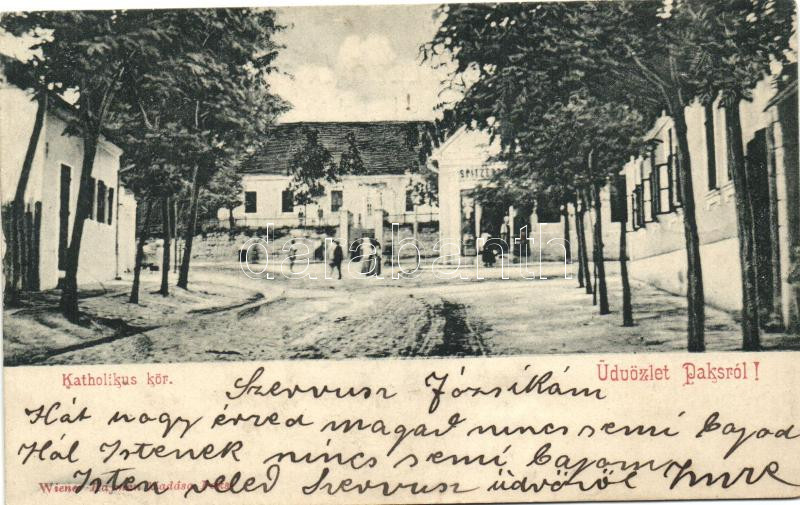 SPITZER
databanth
Katholikus kör.
Üdvözlet Paksról!
Szervusz Józsikám
Hát hogy érzed magad nincs semi bajod
Hál Istenek nincs semi bajom
Isten veled Szervusz üdvözöl Imre
Wiener kiadása